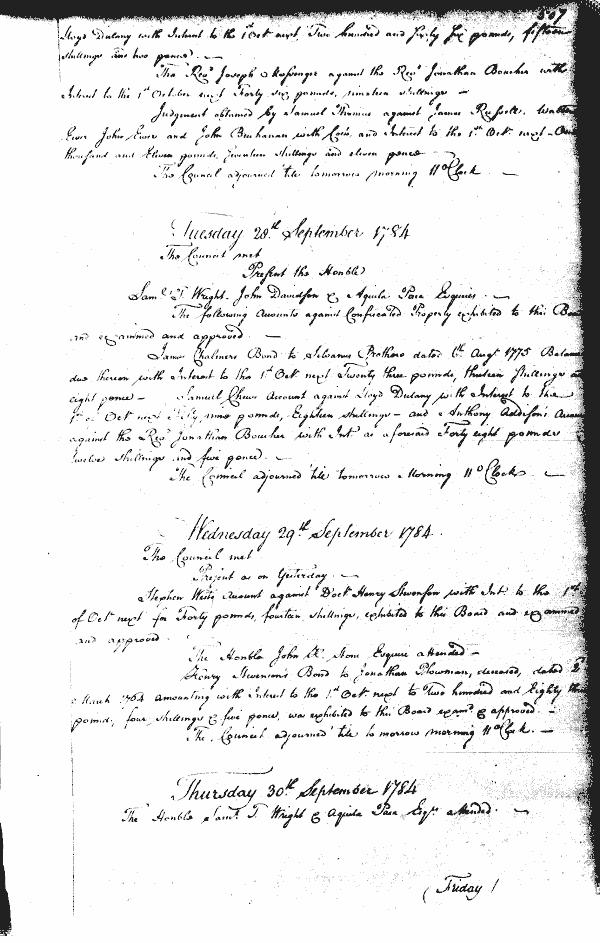 507
Lloyd Dulany with Interest to the 1st Oct next, Two hundred and Sixty Six pounds, fifteen
shillings and two pence. —
The Revd Joseph Messenger against the Revd Jonathan Boucher with
Interest to the 1st October next Forty six pounds, nineteen shillings —
Judgment obtained by Samuel Thomas against James Russell, Walter
Ewer John Ewer and John Buchanan with Costs, and Interest to the 1st Octr next — One
thousand and Eleven pounds, Seventeen shillings and eleven pence
The Council adjourned 'till tomorrow morning 11 oClock —
Tuesday 28th September 1784
The Council met
Present the Honble
Saml T. Wright, John Davidson & Aquila Paca Esquires —
The following Accounts against Confiscated Property exhibited to this
and examined and approved. —
James Chalmers Bond to Silvanus Prothero dated 6th Augt 1775
due thereon with Interest to the 1st Octr next Twenty three pounds, thirteen shillings
eight pence — Samuel Chews Account against Lloyd Dulany with Interest to the
1st of Oct next Fifty nine pounds, Eighteen shillings — and Anthony Addison's
against the Revd Jonathan Boucher with Intt as aforesaid Forty eight pounds
Twelve shillings and five pence. —
The Council adjourned 'till tomorrow Morning 11 oClock —
Wednesday 29th September 1784.
The Council met
Present as on Yesterday —
Stephen Wests Account against Doctr Henry Stevenson with Int to the 1st
of Oct next for Forty pounds, fourteen shillings, exhibited to this Board and examined
and approved
The Honble John H. Stone Esquire attended —
Henry Stevenson's Bond to Jonathan Plowman, deceased, dated 2
March 1764 amounting with Interest to the 1st Oct next to Two hundred and Eighty
pounds, four shillings & five pence, was exhibited to this Board examd & approved —
The Council adjourned 'till to morrow morning 11 oClock. —
Thursday 30th September 1784
The Honble Saml T. Wright & Aquila Paca Esqrs attended. —
(Friday)